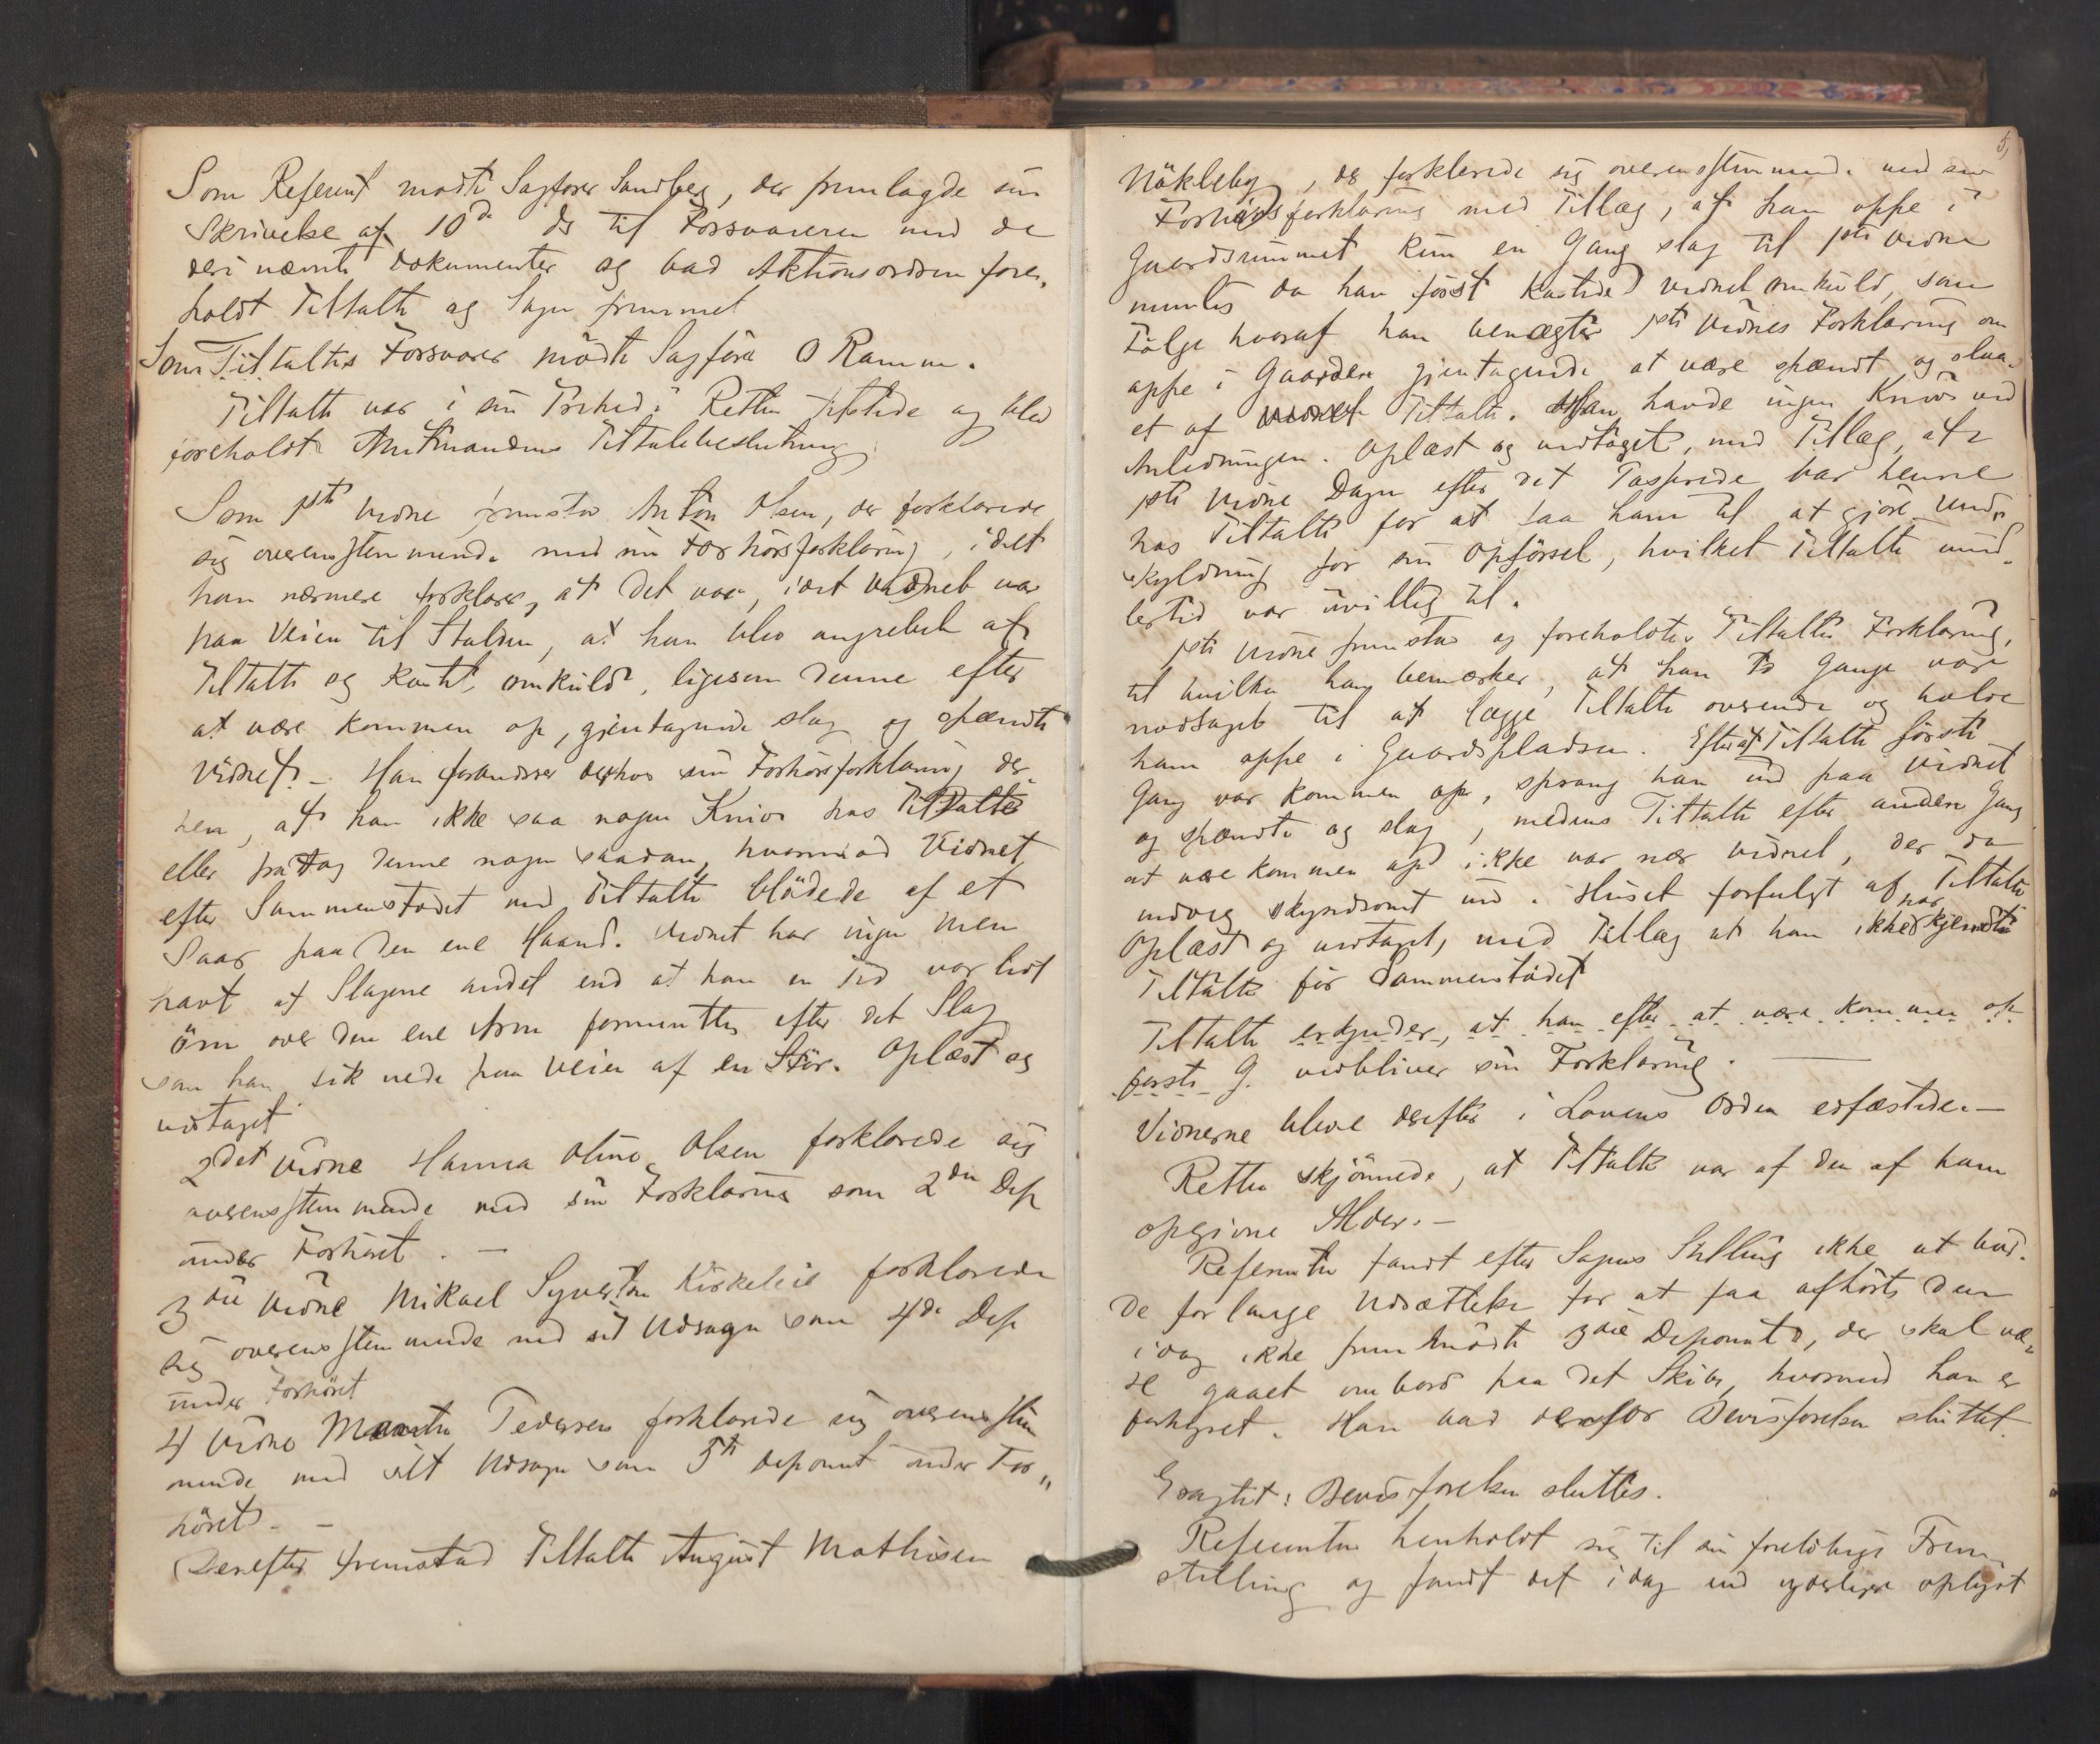 Som Referent mødte Sagfører Sandberg, der fremlagde sin
Skrivelse af 10de ds til Forsvareren med de
deri nævnte Dokumenter og bad Aktionsordren fore,
holdt Tiltalte og Sagen fremmet
Som Tiltaltes Forsvarer mødte Sagfører O Ramm.
Tiltalte var i sin Frihed i Retten tilstede og blev
foreholdt Amtmandens Tiltalebeslutning.
Som 1ste Vidne fremstod Anton Olsen, der forklarede
sig overensstemmende med sin Forhörsforklaring, idet
han nærmere forklarer, at det var, idet Vidnet var
paa Veien til Stalden, at han blev angrebet af
Tiltalte og kastet omkuld, ligesom denne efter
at være kommen op, gjentagende slog og spændte
Vidnet. – Han forandrer derhos sin Forhörsforklaring der,
hen, at han ikke saa nogen Kniv hos Tiltalte
eller fratog denne nogen saadan, hvorimod Vidnet
efter Sammenstødet med Tiltalte blödede af et
Saar paa den ene Haand. Vidnet har ingen Men
havt af Slagene andet end at han en Tid var lidt
öm over den ene Arm formentlig efter det Slag
som han fik nede paa Veien af en Stör. Oplæst og
vedtaget
2det Vidne Hanna Oline Olsen forklarede sig
overensstemmende med sin Forklaring som 2den Dep
under Forhöret. –
3die Vidne Mikael Syversen Kirkeleie forklarede
sig overensstemmende med sit Udsagn som 4de Dep
under Forhöret
4 Vidne Pedersen forklarede sig overensstem
mende med sit Udsagn som 5te deponent under For„
höret. –
Derefter fremstod Tiltalte August Mathisen
5,
Nökleby, der forklarede sig overensstemmende med sin
Forhörsforklaring med Tillæg, at han oppe i
Gaardsrummet kun en Gang slog til 1ste Vidne
nemlig da han först kastede Vidnet omkuld, som
Følge hvoraf han benægter 1ste Vidnes Forklaring om
oppe i Gaarden gjentagende at være spændt og slaa,
et af Tiltalte. Han havde ingen Kniv ved
Anledningen. Oplæst og vedtaget, med Tillæg, at
1ste Vidne Dagen efter det Passerede var henne
hos Tiltalte for at faa ham til at gjöre Und,
skyldning for sin Opförsel, hvilket Tiltalte imid,
lertid var uvillig til.
1ste Vidne fremstod og foreholdtes Tiltaltes Forklaring,
til hvilken han bemærker, at han to Gange var
nødsaget til at lægge Tiltalte overende og holde
ham oppe i Gaardspladsen. Efterat Tiltalte förste
Gang var kommen op, sprang han ind paa Vidnet
og spændte og slog, medens Tiltalte efter anden Gang
at være kommen op ikke var nær Vidnet, der da
undveg skyndsomt ind i Huset forfulgt af Tiltalte
Oplæst og vedtaget, med Tillæg at han ikke har kjendte
Tiltalte för Sammenstödet
Tiltalte erkjender, at han efter at være kommen op
förste G. vedbliver sin Forklaring. —
Vidnerne bleve derefter i Lovens Orden edfæstede. –
Retten skjönnede, at Tiltalte var af den af ham
opgivne Alder. –
Referenten fandt efter Sagens Stilling ikke at bur,
de forlange Udsættelse for at faa afhört den
idag ikke fremmödte 3die Deponent, der skal væ,
re gaaet ombord paa det Skib, hvormed han er
forhyret. Han bad derfor Bevisförelsen sluttet.
Eragtet: Bevisförelsen sluttes.
Referenten henholdt sig til sin foreløbige Frem,
stilling og fandt det idag end yderligere oplyst